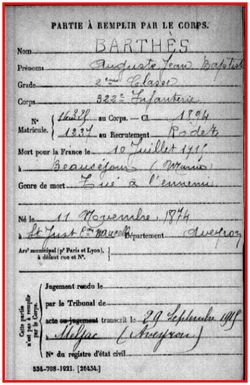 PARTIE À REMPLIR PAR LE CORPS.
Nom BARTHÈS
Prénoms Auguste Jean Baptist
Grade 2ème Classe
Corps 322e Infanterie
N° au Corps. — Cl 1894
Matricule. 1237 au Recrutement Rodez
Mort pour la France le 10 Juillet 1915
à Beauséjour (Marne)
Genre de mort Tué à l'ennemi
Né le 11 Novembre 1874
à St Just Département Aveyron
Arr' municipal (pr Paris et Lyon),
à défaut rue et N°.
Cette partie
n'est pas à remplir
par le Corps.
Jugement rendu le
par le Tribunal de
acte ou jugement transcrit le 29 Septembre 1915
à Meljac (Aveyron)
N° du registre d'état civil
534-708-1921. [26434.]